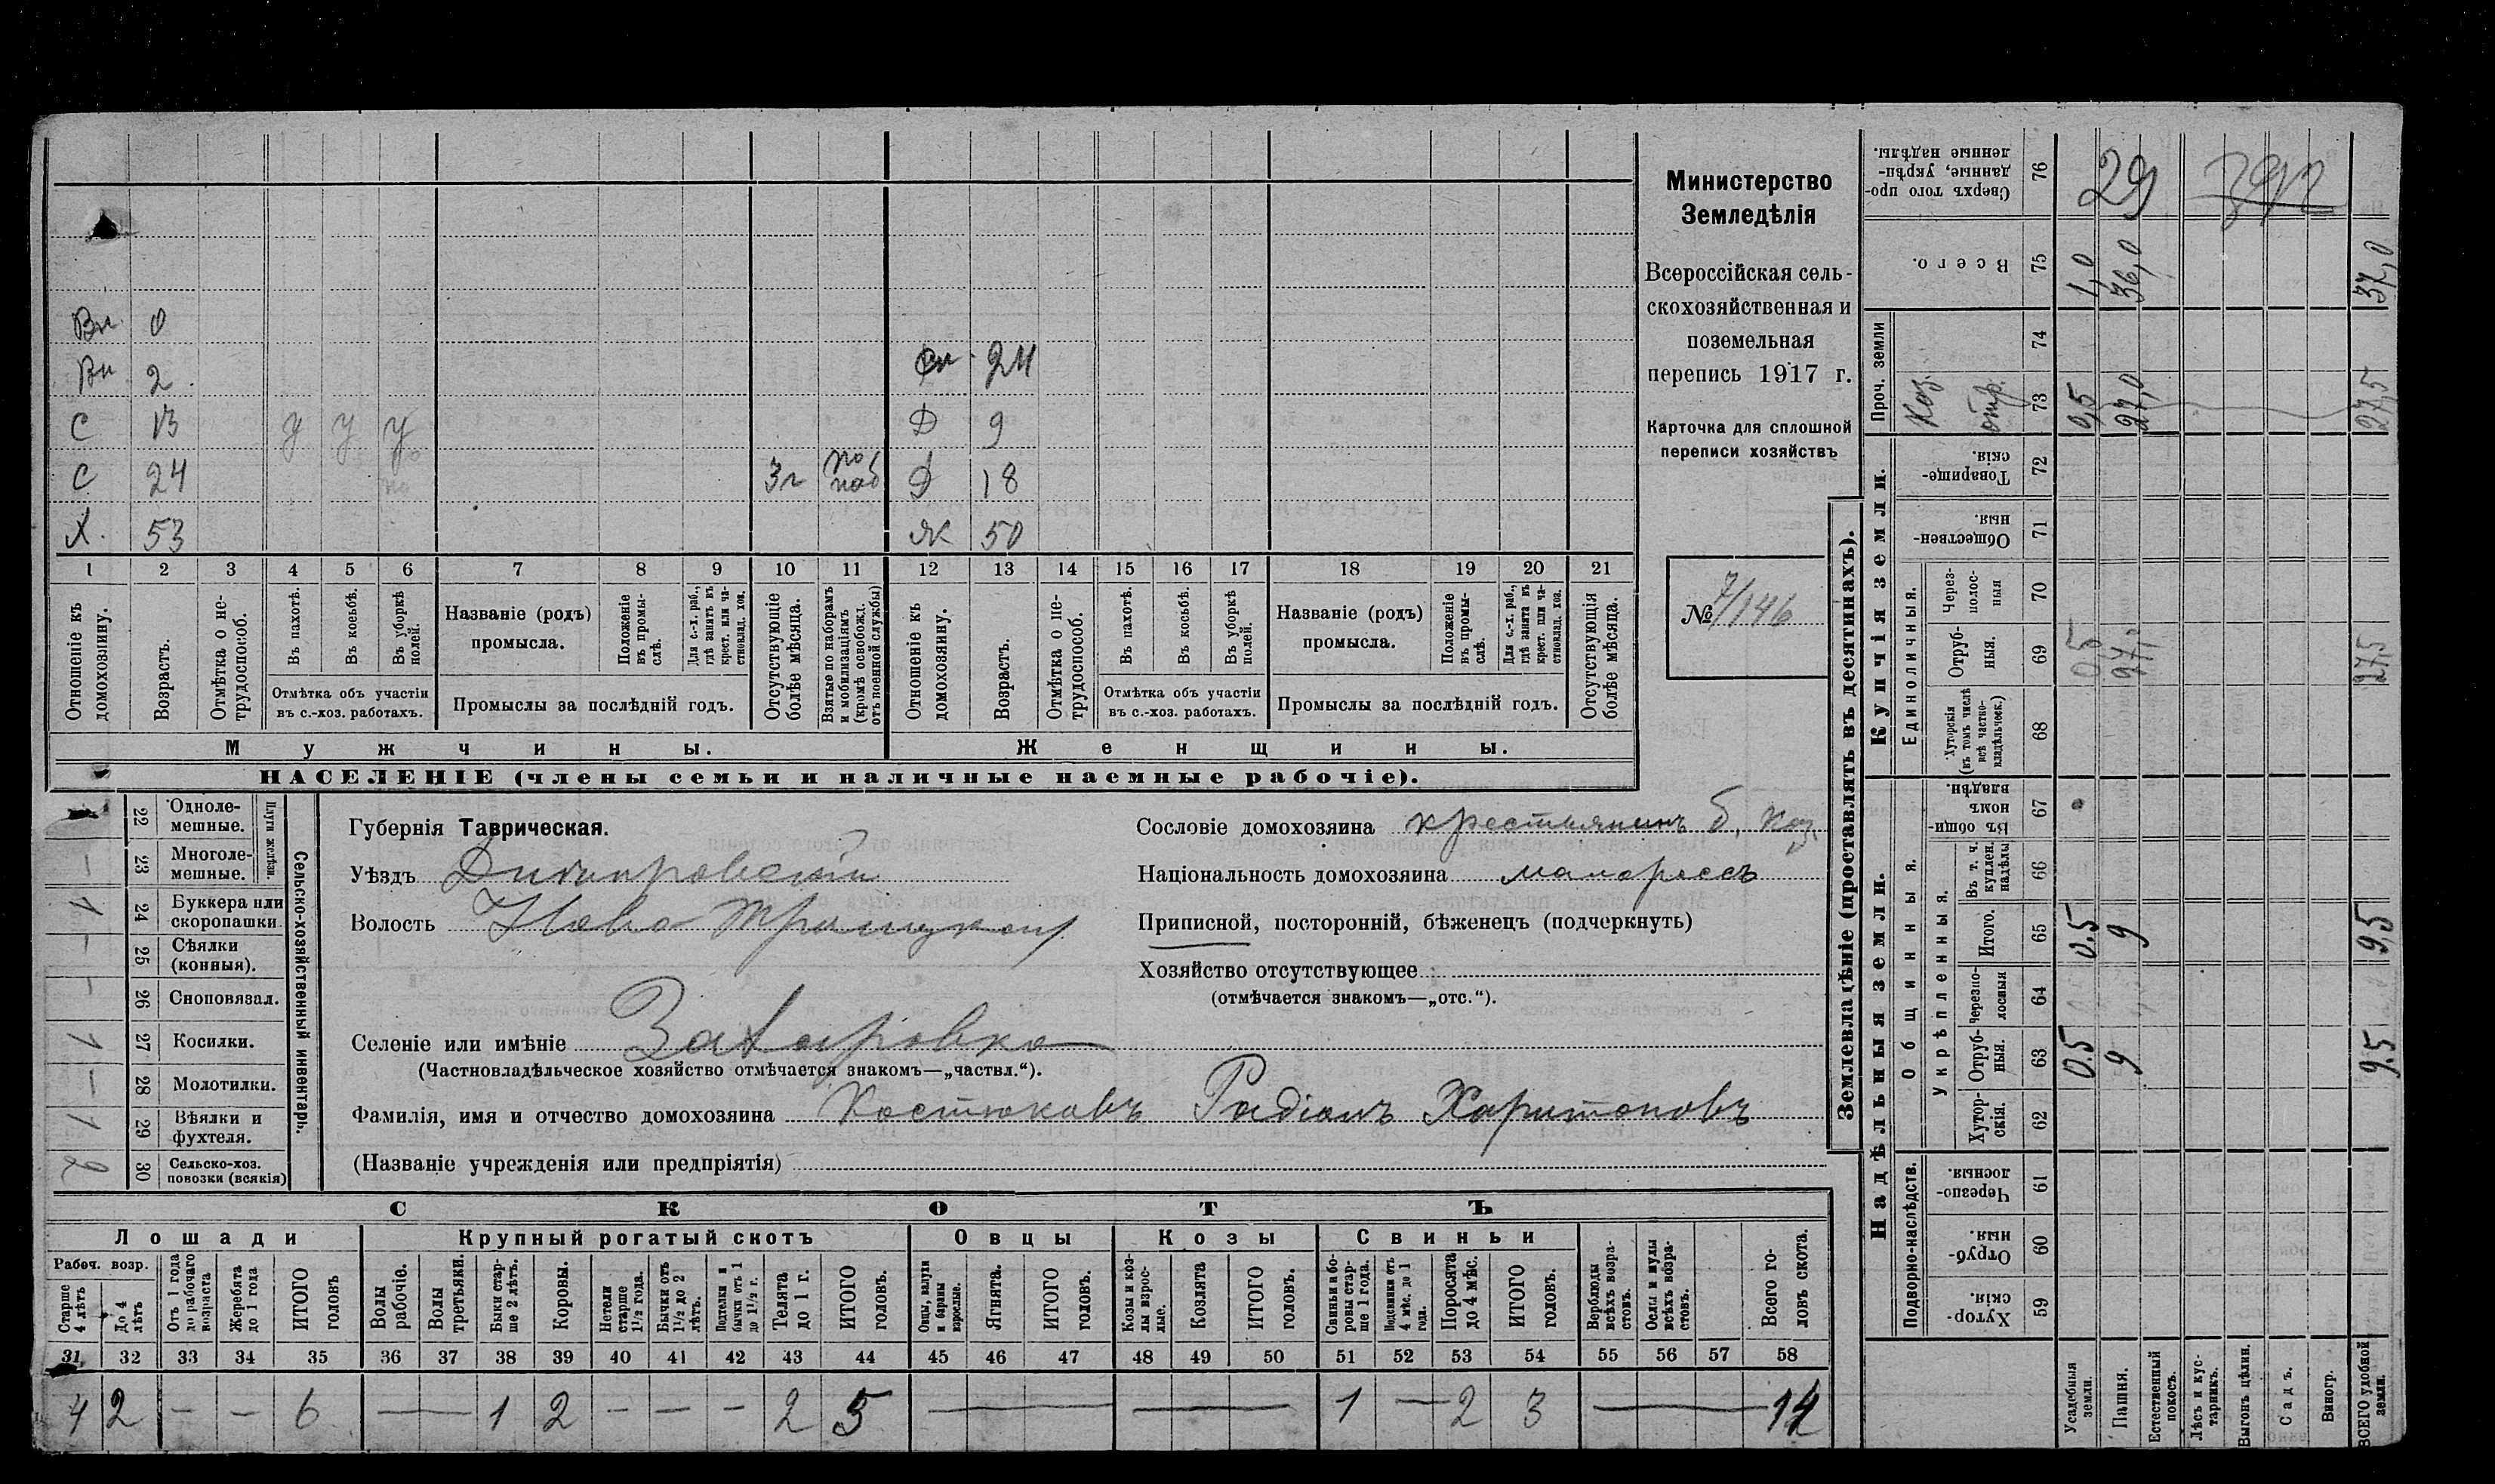 Вн. 0
Вн 2
Сн. 24
С 13 у у у
Д 9
С 24 3 г по моб
Д 18
Х. 53
Ж 50
1 2 3 4 5 6 7 8 9 10 11 12 13 14 15 16 17 18 19 20 21
Отношеніе къ домохозяину.
Возрастъ.
Отмѣтка о нетрудоспособ.
Въ пахотѣ.
Въ косьбѣ.
Въ уборкѣ полей.
Отмѣтка объ участіи въ с.-хоз. работахъ.
Названіе (родъ) промысла.
Положеніе въ промыслѣ.
Для с.-х. раб., гдѣ занятъ въ крест. или частновлад. хоз.
Промыслы за послѣдній годъ.
Отсутствующіе болѣе мѣсяца.
Взятые по наборамъ и мобилизаціямъ (кромѣ освобожд. отъ военной службы)
Отношеніе къ домохозяину.
Возрастъ.
Отмѣтка о нетрудоспособ.
Въ пахотѣ.
Въ косьбѣ.
Въ уборкѣ полей.
Отмѣтка объ участіи въ с.-хоз. работахъ.
Названіе (родъ) промысла.
Положеніе въ промыслѣ.
Для с.-х. раб., гдѣ занята въ крест. или частновлад. хоз.
Промыслы за послѣдній годъ.
Отсутствующія болѣе мѣсяца.
Мужчины.
Женщины.
НАСЕЛЕНІЕ (члены семьи и наличные наемные рабочіе).
Министерство
Земледѣлія
Всероссійская сель-
скохозяйственная и
поземельная
перепись 1917 г.
Карточка для сплошной
переписи хозяйствъ
№ 7/146
Сельско-хозяйственный инвентарь.
Плуги желѣзн.
22 Однолемешные.
23 Многолемешные. —
24 Буккера или скоропашки 1
25 Сѣялки (конныя). —
26 Сноповязал. —
27 Косилки. 1
28 Молотилки. —
29 Вѣялки и фухтеля. 1
30 Сельско-хоз. повозки (всякія) 2
Губернія Таврическая.
Уѣздъ Днѣпровскій
Волость Ново-Троицкая
Селеніе или имѣніе Захаровка
(Частновладѣльческое хозяйство отмѣчается знакомъ—„частвл.“).
Фамилія, имя и отчество домохозяина Костюковъ Радіонъ Харитоновъ
(Названіе учрежденія или предпріятія)
Сословіе домохозяина крестьянинъ б. каз.
Національность домохозяина малороссъ
Приписной, посторонній, бѣженецъ (подчеркнуть)
Хозяйство отсутствующее
(отмѣчается знакомъ—„отс.“).
СКОТЪ
Лошади
Крупный рогатый скотъ
Овцы
Козы
Свиньи
Рабоч. возр.
Старше 4 лѣтъ
До 4 лѣтъ
Отъ 1 года до рабочаго возраста
Жеребята до 1 года
ИТОГО головъ
Волы рабочіе.
Волы третьяки.
Быки старше 2 лѣтъ.
Коровы.
Нетели старше 1½ года.
Бычки отъ 1½ до 2 лѣтъ.
Подтелки и бычки отъ 1 до 1½ г.
Телята до 1 г.
ИТОГО головъ.
Овцы, валухи и бараны взрослые.
Ягнята.
ИТОГО головъ.
Козы и козлы взрослые.
Козлята
ИТОГО головъ.
Свиньи и боровы старше 1 года.
Подсвинки отъ 4 мѣс. до 1 года.
Поросята до 4 мѣс.
ИТОГО головъ.
Верблюды всѣхъ возрастовъ.
Ослы и мулы всѣхъ возрастовъ.
Всего головъ скота.
31 32 33 34 35 36 37 38 39 40 41 42 43 44 45 46 47 48 49 50 51 52 53 54 55 56 57 58
4 2 — — 6 — 1 2 — — — 2 5 — — 1 — 2 3 — 14
Землевладѣніе (проставлять въ десятинахъ).
Надѣльныя земли.
Купчія земли.
Проч. земли
Подворно-наслѣдств.
Общинныя.
Укрѣпленныя.
Единоличныя.
59 Хуторскія.
60 Отрубныя.
61 Черезполосныя.
62 Хуторскія.
63 Отрубныя. 0.5 9 9.5
64 Черезполосныя
65 Итого. 0.5 9 9,5
66 Въ т. ч. куплен. надѣлы
67 Въ общинномъ владѣн.
68 Хуторскія (въ томъ числѣ всѣ частновладѣльческ.)
69 Отрубныя. 0,5 27, 27,5
70 Черезполосныя
71 Общественныя.
72 Товарищескія.
73 Каз. отр. 0,5 27,0 27,5
74
75 Всего. 1,0 36,0 37,0
76 Сверхъ того проданные, укрѣпленные надѣлы.
29
Усадебныя земли.
Пашня.
Естественный покосъ.
Лѣсъ и кустарникъ.
Выгонъ цѣлин.
Садъ.
Виногр.
ВСЕГО удобной земли.